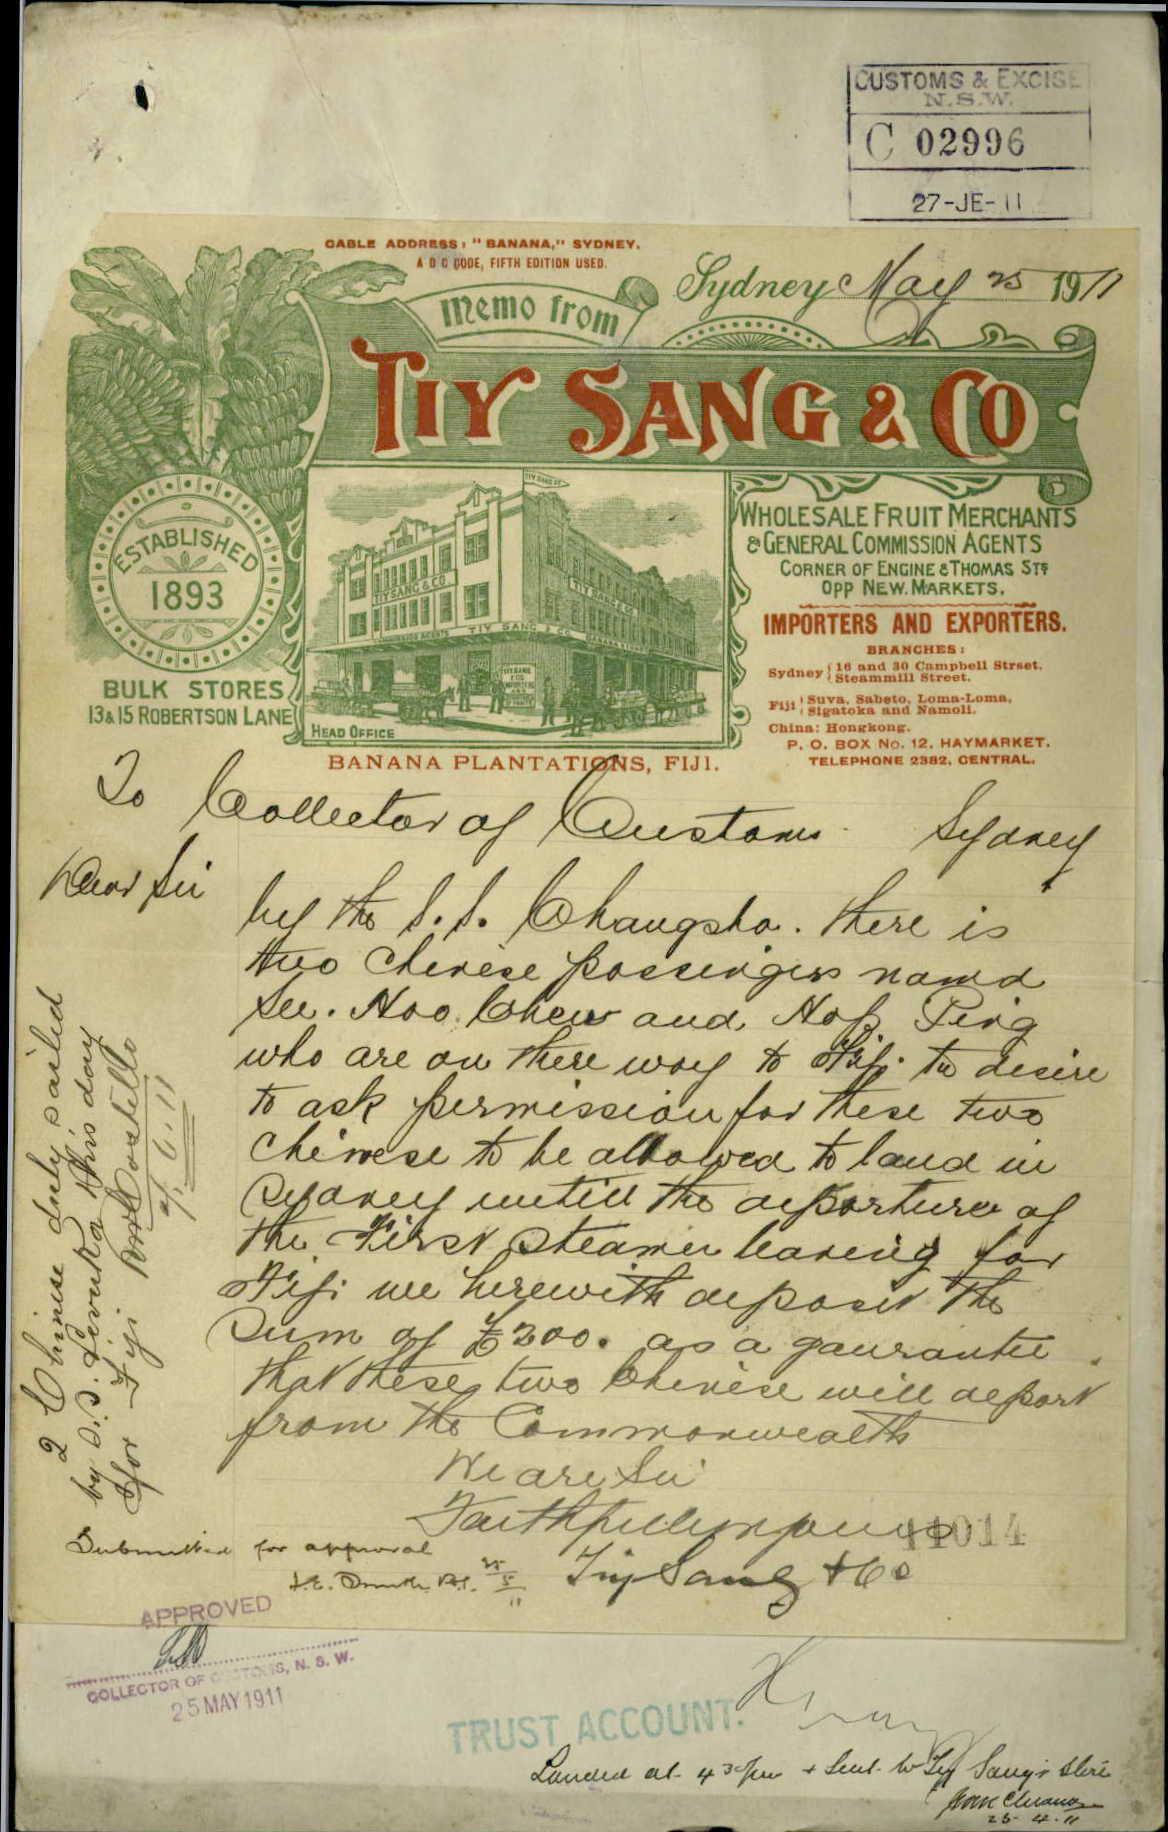 CUSTOMS & EXCISE
N.S.W.
C 02996
27-JE-11
CABLE ADDRESS: "BANANA," SYDNEY.
A B C CODE, FIFTH EDITION USED.
Sydney May 25 1911
Memo from
TIY SANG & CO
ESTABLISHED
1893
BULK STORES
13 & 15 ROBERTSON LANE
TIY SANG & CO
TIY SANG & CO
TIY SANG & CO
HEAD OFFICE
BANANA PLANTATIONS, FIJI.
WHOLESALE FRUIT MERCHANTS
& GENERAL COMMISSION AGENTS
CORNER OF ENGINE & THOMAS STS
OPP NEW MARKETS.
IMPORTERS AND EXPORTERS.
BRANCHES:
Sydney { 16 and 30 Campbell Street.
Steammill Street.
Fiji { Suva, Sabeto, Loma-Loma,
Sigatoka and Namoli.
China: Hongkong.
P. O. BOX No. 12, HAYMARKET.
TELEPHONE 2382, CENTRAL.
To Collector of Customs Sydney
Dear Sir
by the S.S. Changsha. there is
two Chinese passengers named
See. Hoo. Chew and Hop Ping
who are on there way to Fiji. We desire
to ask permission for these two
Chinese to be allowed to land in
Sydney untill the departure of
the First Steamer leaving for
Fiji we herewith deposit the
Sum of £200. as a gaurantee
that these two Chinese will depart
from the Commonwealth
We are Sir
Faithfully yours
Tiy Sang & Co
44014
2 Chinese duly sailed
by S.S. Levuka this day
for Fiji Costello
9.6.11
Submitted for approval
25/5/11
APPROVED
COLLECTOR OF CUSTOMS, N. S. W.
25 MAY 1911
TRUST ACCOUNT.
Landed at 4 30 pm & sent to Tiy Sang's store
25.4.11